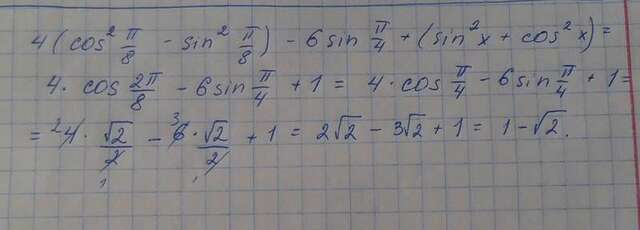 4(cos² π/8 - sin² π/8) - 6sin π/4 + (sin²x + cos²x) =
4 · cos 2π/8 - 6sin π/4 + 1 = 4 · cos π/4 - 6sin π/4 + 1 =
= ²4 · √2/2 ₁ - ³6 · √2/2 ₁ + 1 = 2√2 - 3√2 + 1 = 1 - √2.